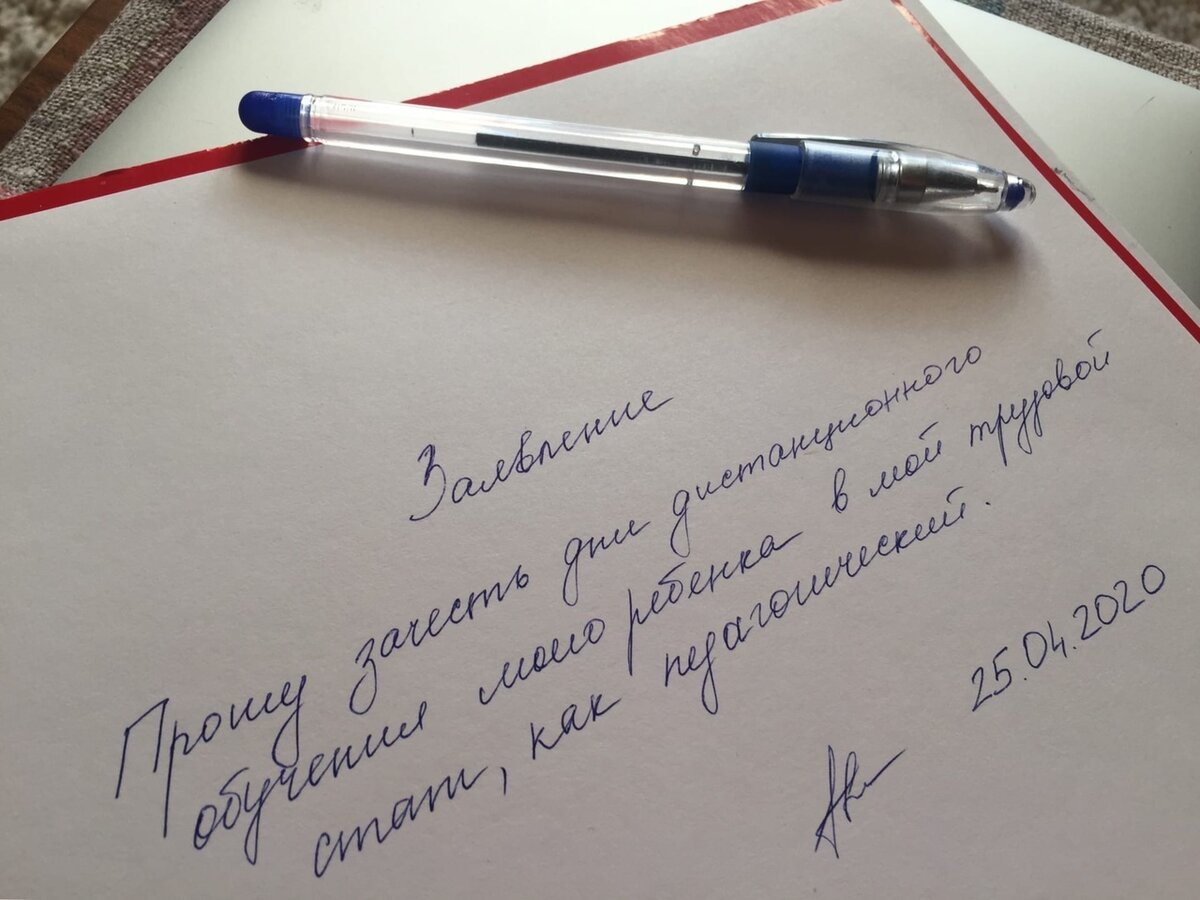 Заявление
Прошу зачесть дни дистанционного
обучения моего ребенка в мой трудовой
стаж, как педагогический.
25.04.2020